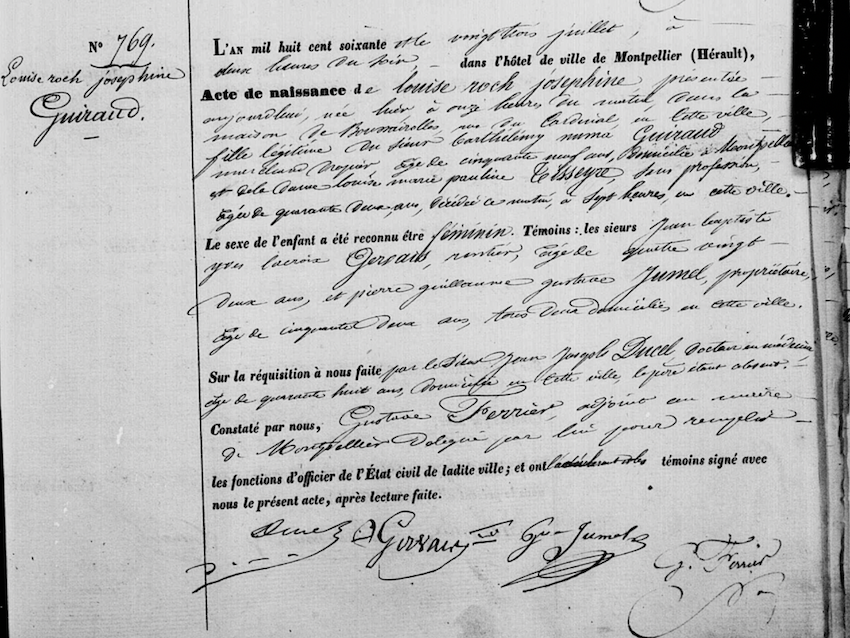 N° 769.
Louise roch joséphine
Guiraud.
L'AN mil huit cent soixante et le vingt trois juillet, à
deux heures du soir, dans l'hôtel de ville de Montpellier (Hérault),
Acte de naissance de louise roch joséphine présentée
aujourdhui, née hier à onze heures du matin, dans la
maison de Boussairolles, rue du Cardinal en cette ville,
fille légitime du Sieur Barthélémy numa Guiraud
marchand drapier, âgé de cinquante neuf ans, domicilié à Montpellier
et de la dame louise marie pauline Tisseyre, sans profession,
âgée de quarante deux ans, décédée ce matin, à sept heures, en cette ville.
Le sexe de l'enfant a été reconnu être féminin. Témoins: les sieurs Jean baptiste
yves lacroix Gervais, rentier, âgé de quatre vingt
deux ans, et pierre guillaume gustave Jumel, propriétaire,
âgé de cinquante deux ans, tous deux domiciliés en cette ville.
Sur la réquisition à nous faite par le Sieur Jean Joseph Ducel, docteur en médecine
âgé de quarante huit ans, domicilié en cette ville, le père étant absent.
Constaté par nous, Gustave Ferrier, adjoint au maire
de Montpellier délégué par lui pour remplir
les fonctions d'officier de l'État civil de ladite ville; et ont le déclarant et les témoins signé avec
nous le présent acte, après lecture faite.
Ducel Gervais Gve Jumel
G. Ferrier